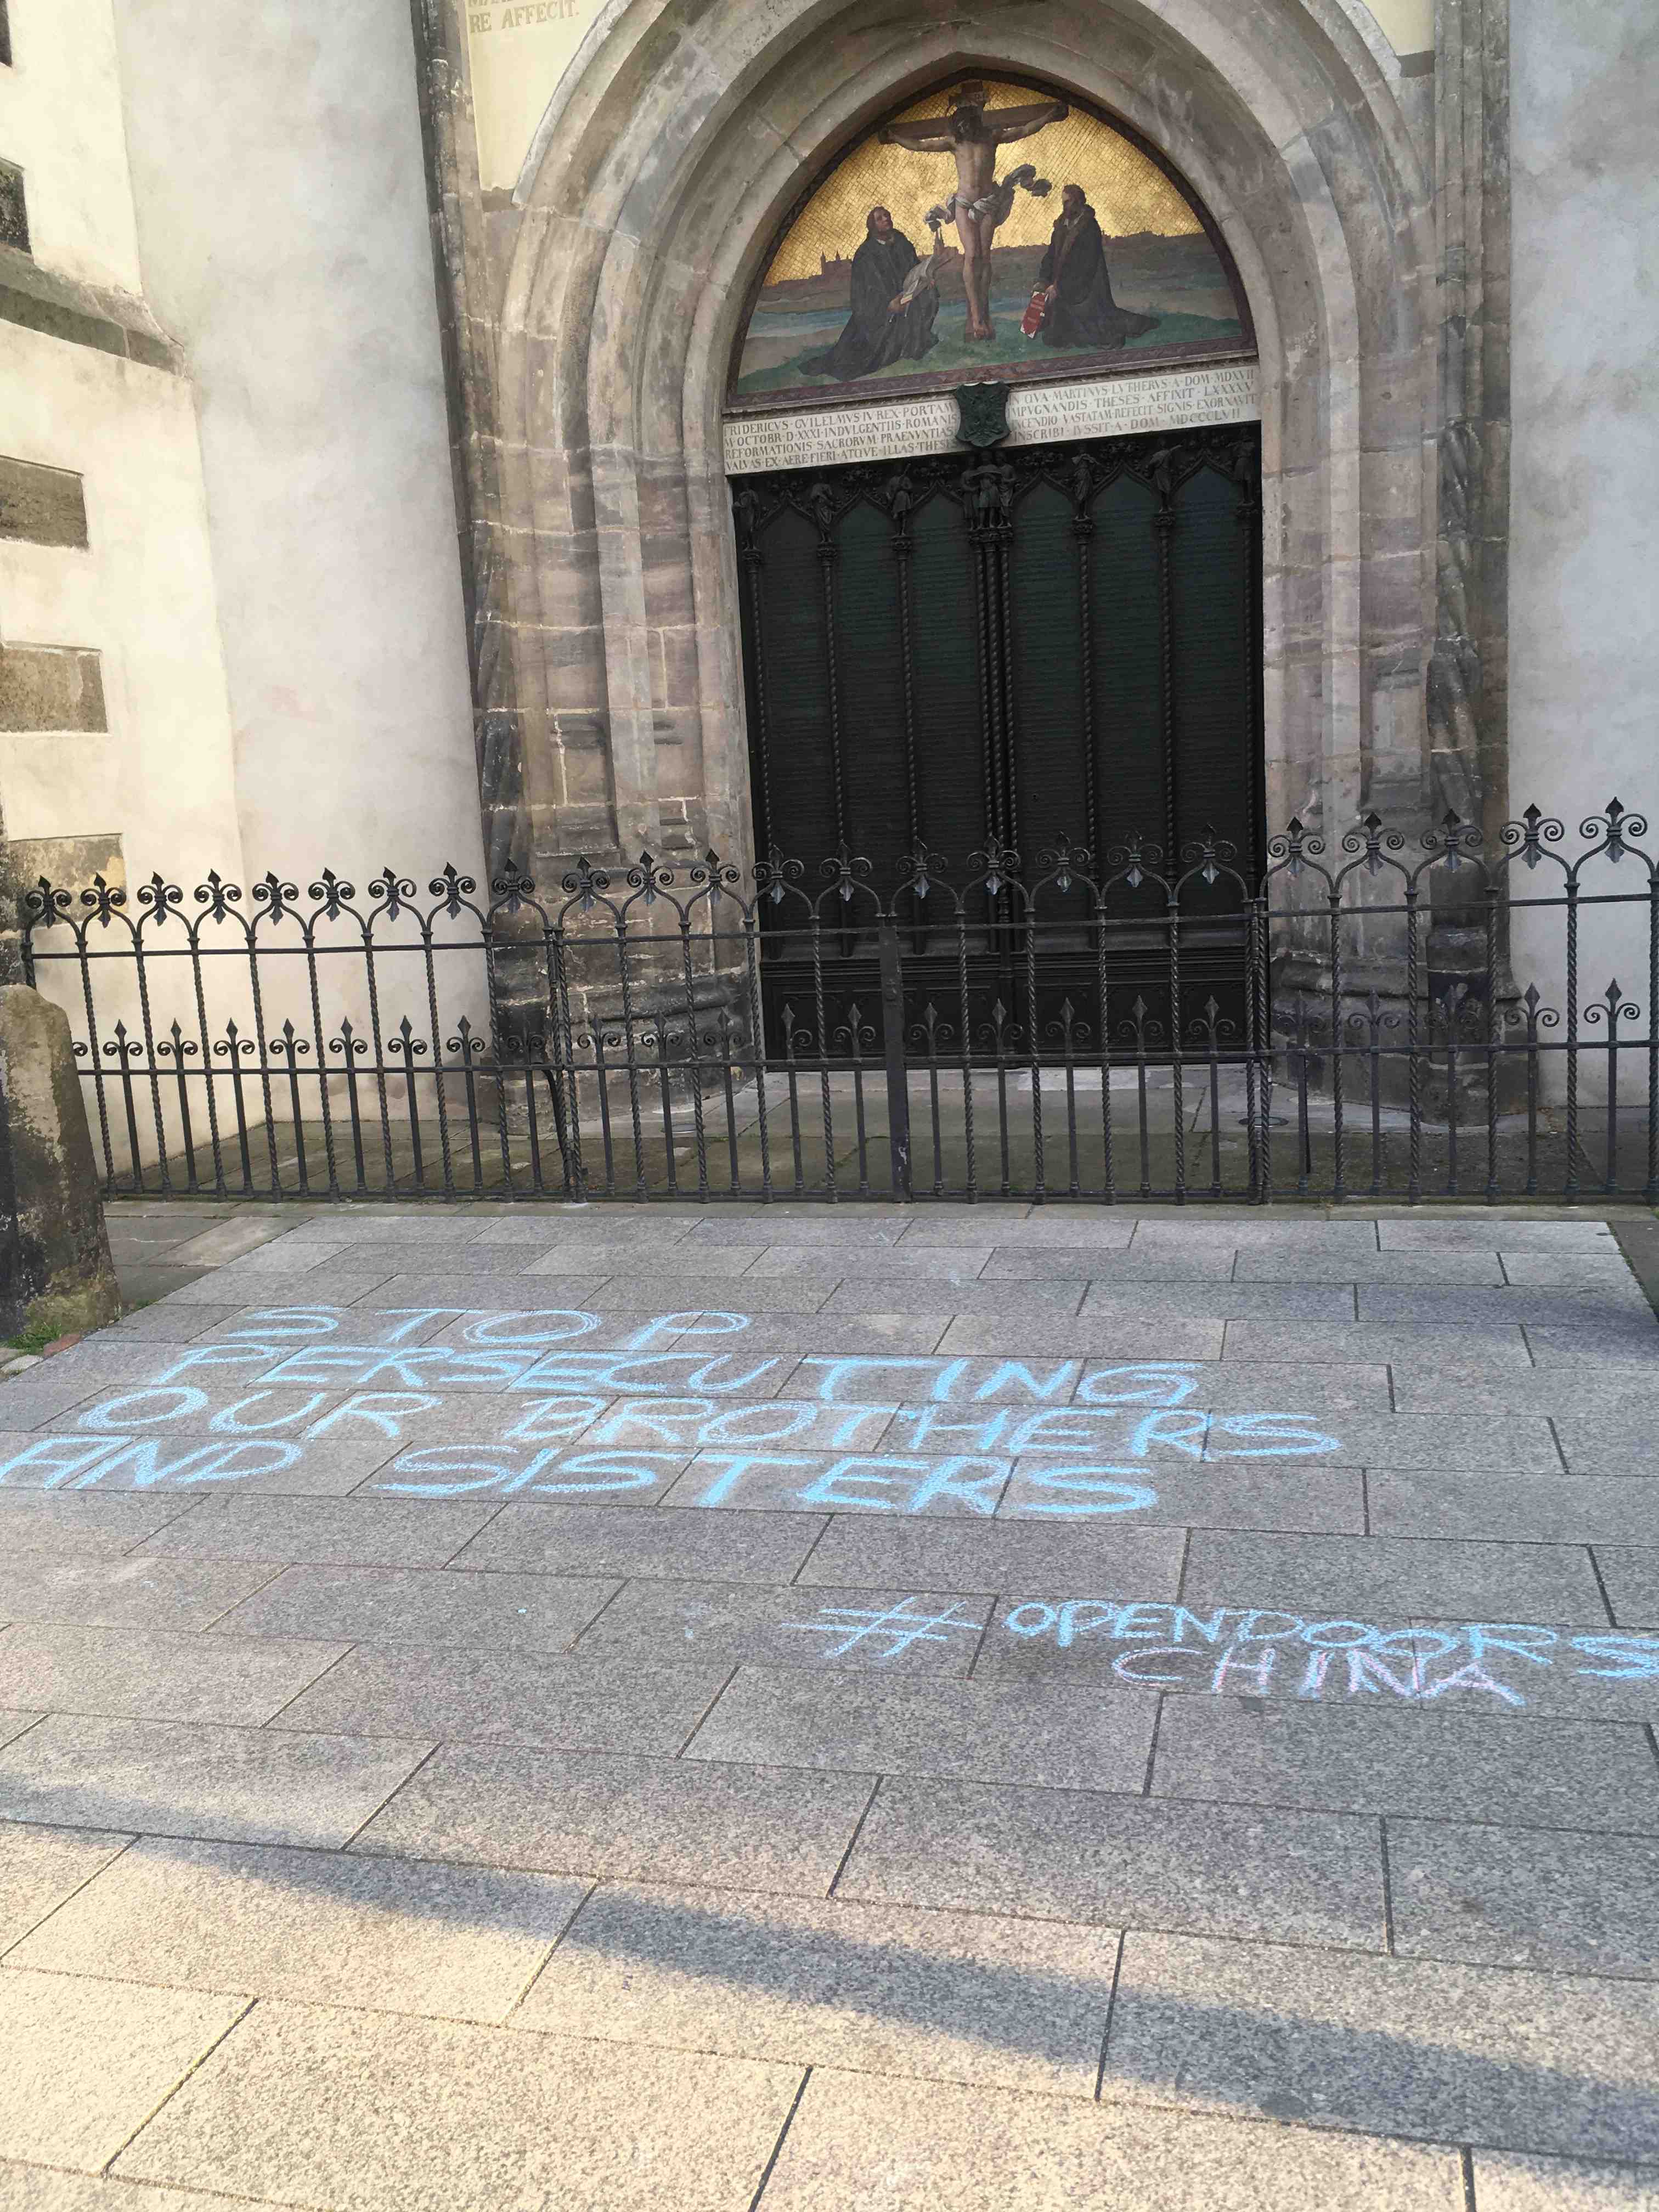 RE AFFECIT.
FRIDERICVS · GVILELMVS · IV · REX · PORTAM QVA · MARTINVS · LVTHERVS · A · DOM · MDXVII
M · OCTOBR · D · XXXI · INDVLGENTIIS · ROMANIS IMPVGNANDIS · THESES · AFFIXIT · LXXXXV
REFORMATIONIS · SACRORVM · PRAENVNTIAS INCENDIO · VASTATAM · REFECIT · SIGNIS · EXORNAVIT
VALVAS · EX · AERE · FIERI · ATQVE · ILLAS · THESES INSCRIBI · IVSSIT · A · DOM · MDCCCLVII
STOP
PERSECUTING
OUR BROTHERS
AND SISTERS
#OPENDOORS
CHINA